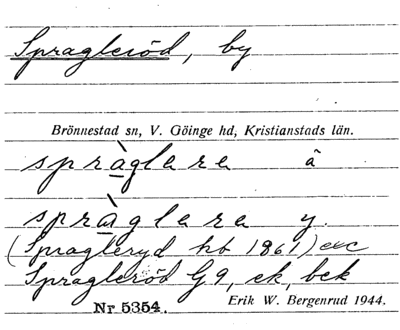 Spragleröd, by
Brönnestad sn, V. Göinge hd, Kristianstads län.
spràglare â
spràglara y.
(Spragleryd hb 1861) exc
Spragleröd G9, ek, bek
Nr 5354. Erik W. Bergenrud 1944.